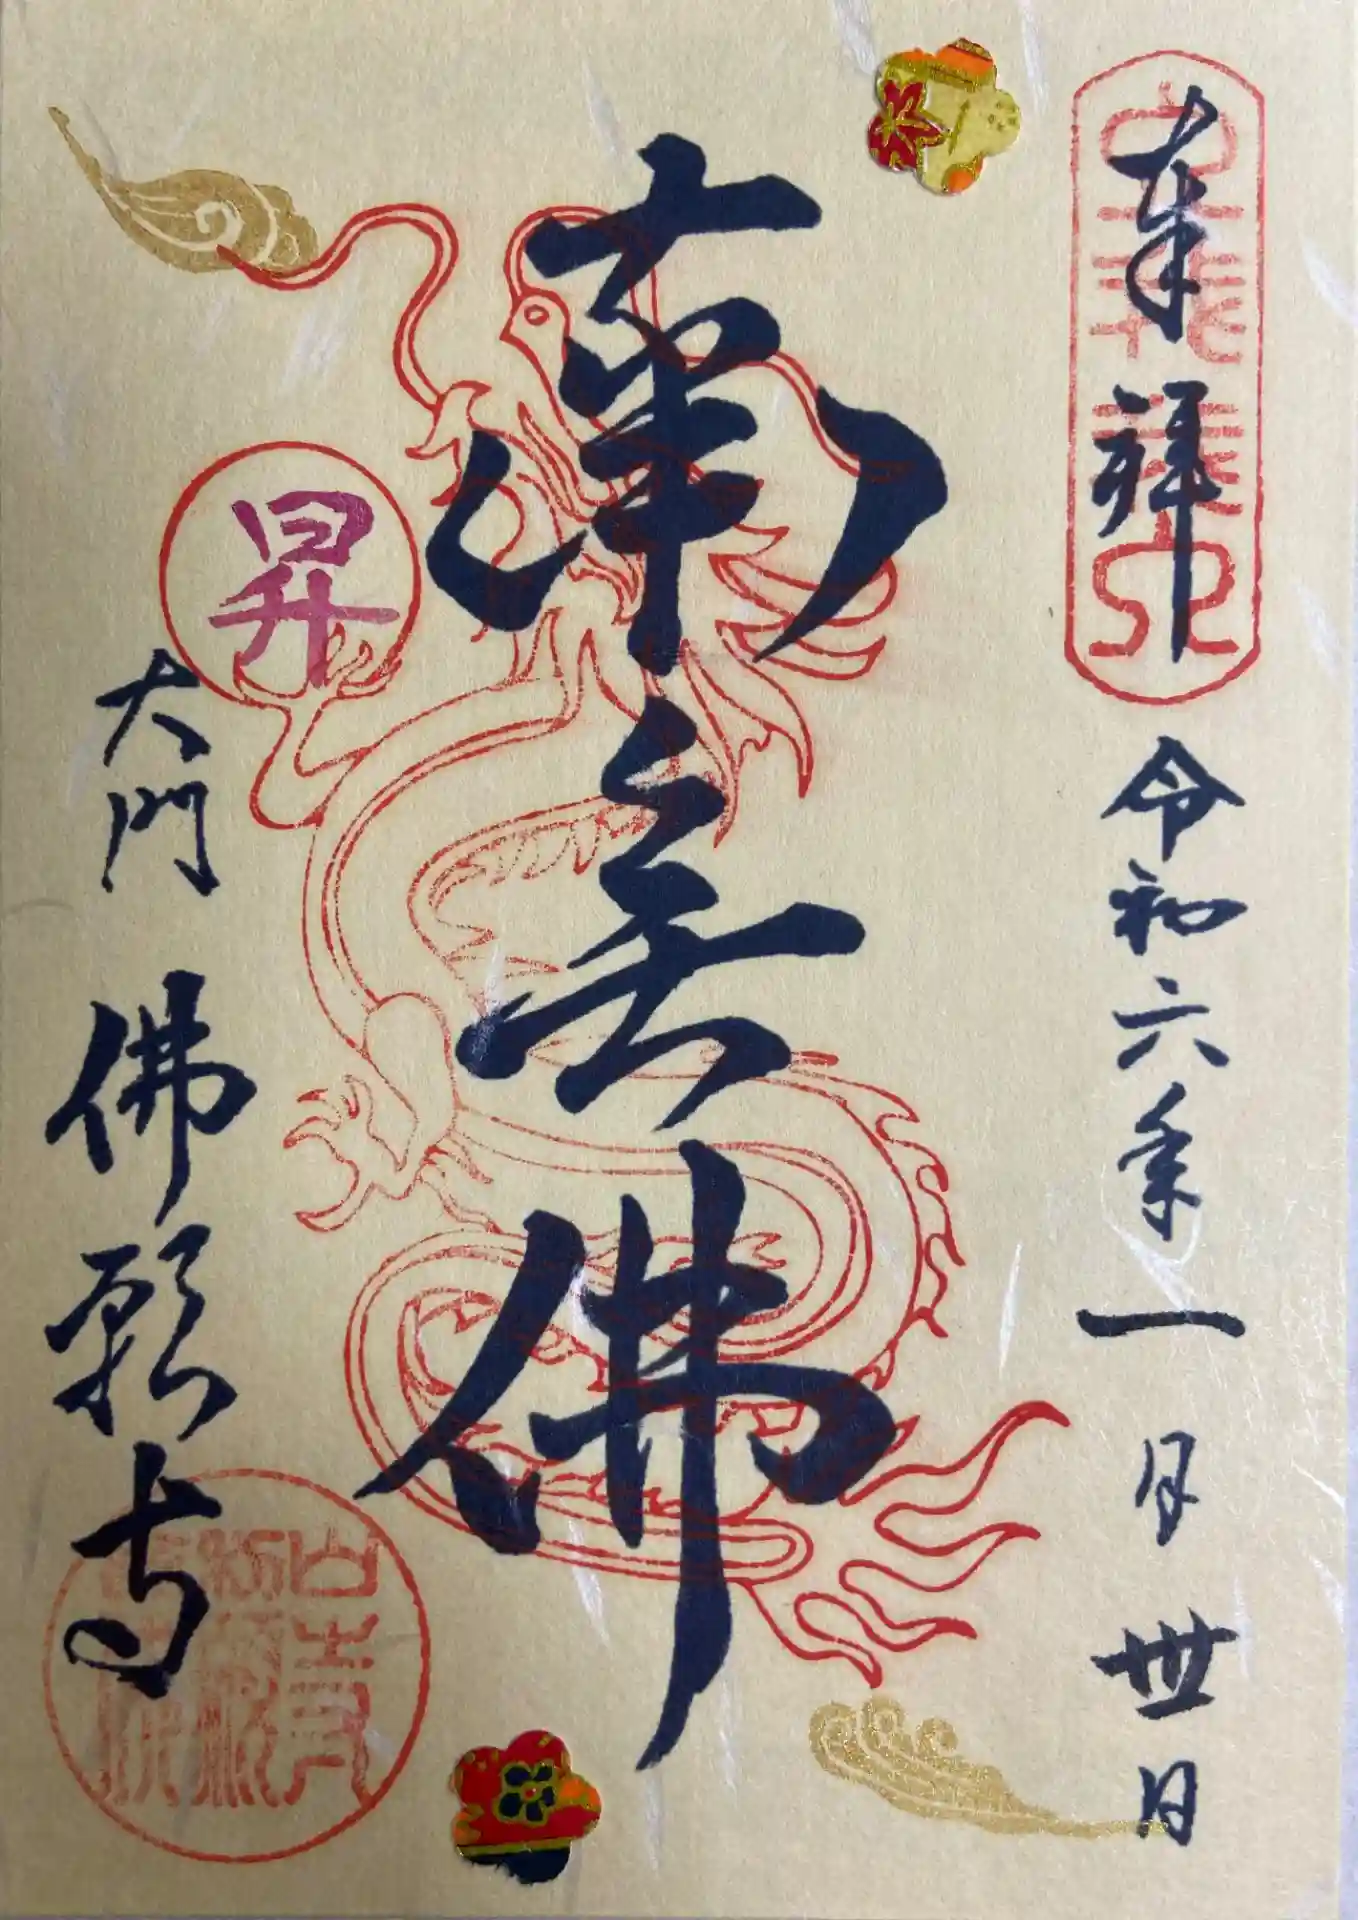 奉拝 令和六年一月丗日
南無佛
昇
大門 佛願寺